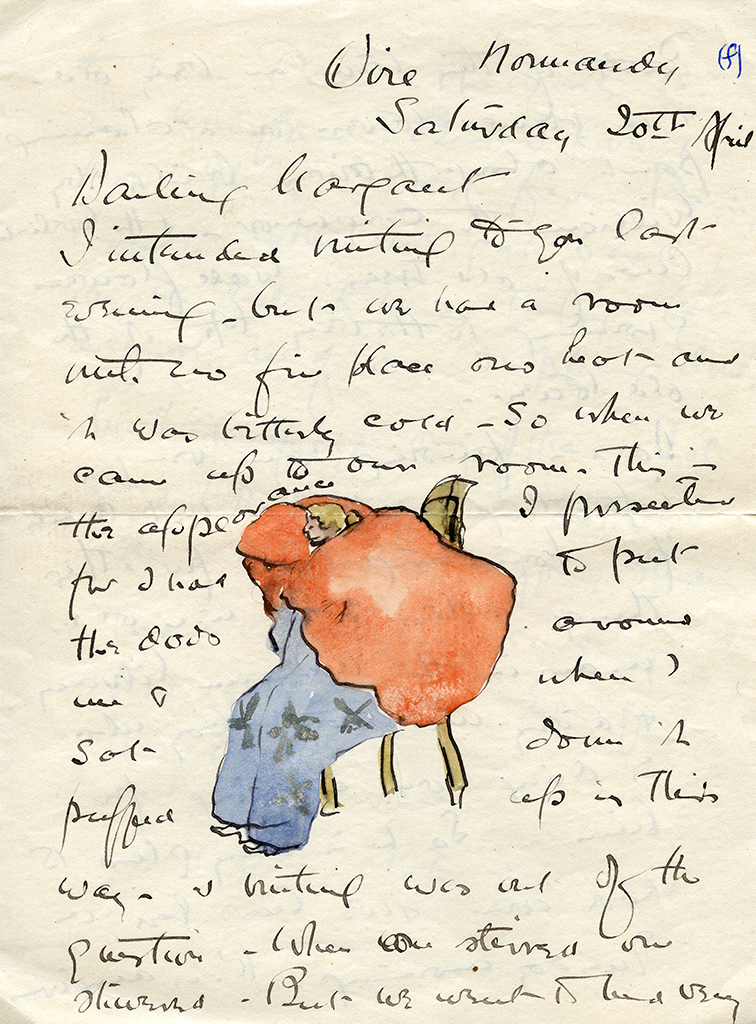 (8)
Vire Normandy
Saturday 20th April
Darling Margaret
I intended writing to you last
evening - but we had a room
with no fire place and no heat and
it was bitterly cold - So when we
came up to our room. This is
the appearance I presented
for I had to put
the dodo around
me & when I
sat down it
puffed up in this
way - & writing was out of the
question - When one stirred one
shivered - But we went to bed very